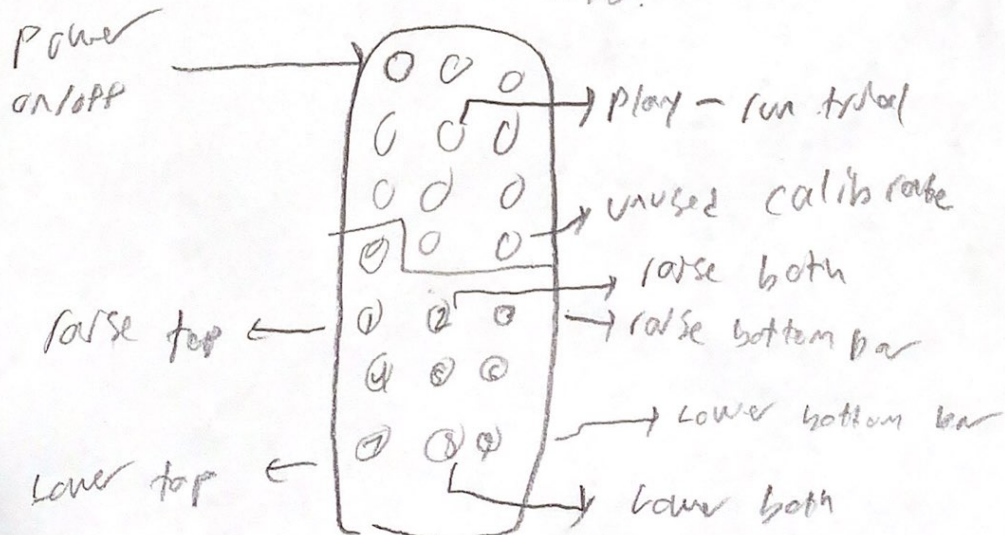 Power
on/off
Play - run trial
unused calibrate
raise both
1 2 3
raise top
raise bottom bar
4 5 6
Lower bottom bar
7 8 9
Lower top
Lower both